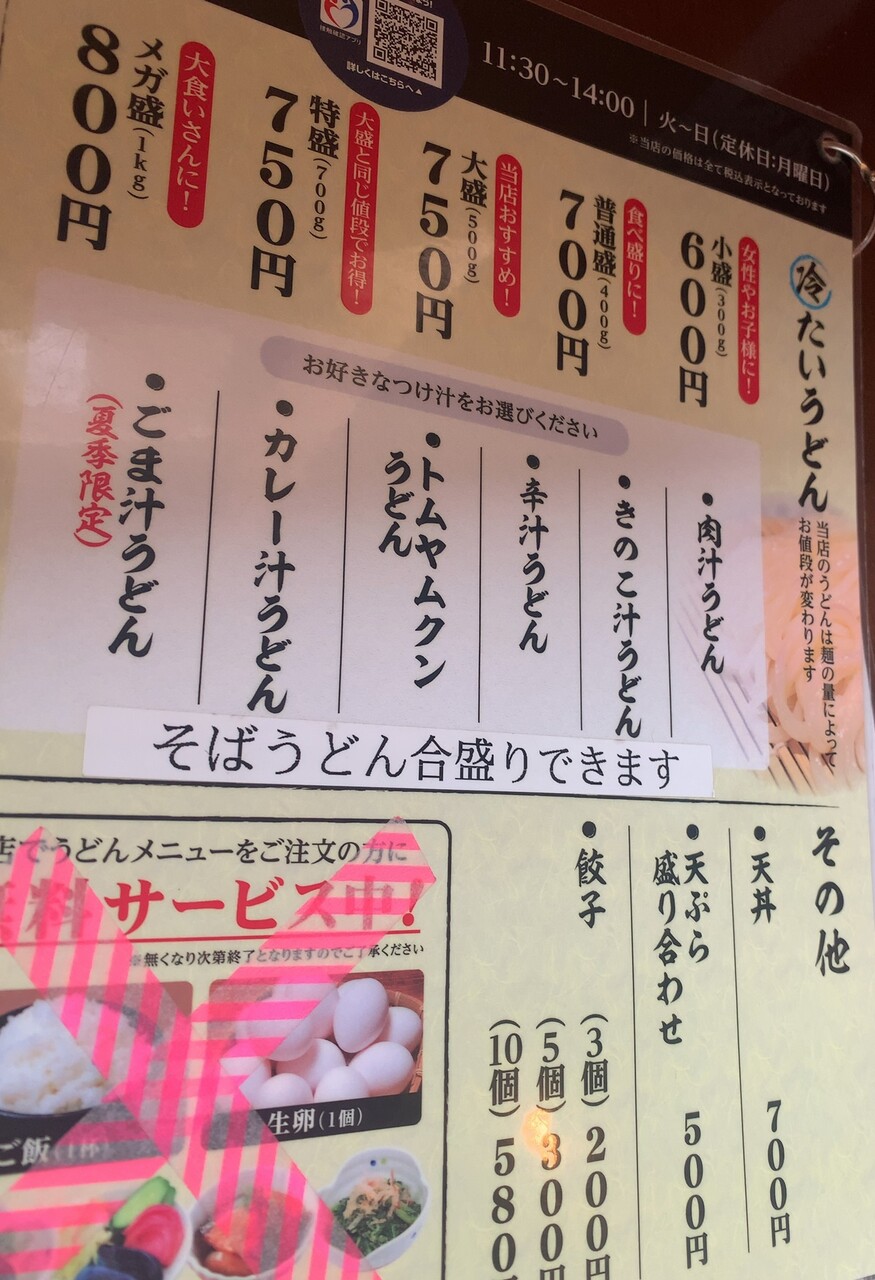 詳しくはこちらへ▲
11:30～14:00｜火～日（定休日：月曜日）
※当店の価格は全て税込表示となっております
冷たいうどん
当店のうどんは麺の量によって
お値段が変わります
女性やお子様に！
小盛（300g）
600円
食べ盛りに！
普通盛（400g）
700円
当店おすすめ！
大盛（500g）
750円
大盛と同じ値段でお得！
特盛（700g）
750円
大食いさんに！
メガ盛（1kg）
800円
お好きなつけ汁をお選びください
●肉汁うどん
●きのこ汁うどん
●辛汁うどん
●トムヤムクン
うどん
●カレー汁うどん
●ごま汁うどん
（夏季限定）
そばうどん合盛りできます
その他
●天丼 700円
●天ぷら
盛り合わせ 500円
●餃子 （3個）200円
（5個）300円
（10個）580
店でうどんメニューをご注文の方に
無料サービス中！
※無くなり次第終了となりますのでご了承ください
ご飯（1杯）
生卵（1個）